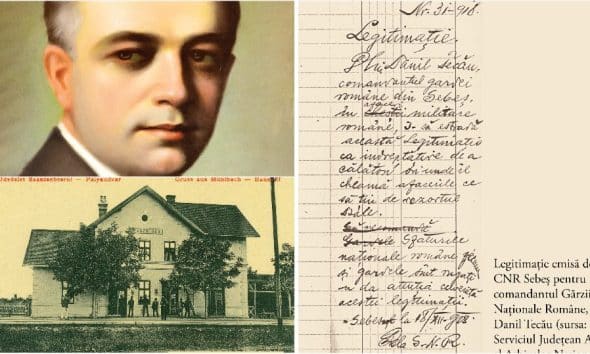 Üdvözlet Szászsebesről - Pályaudvar Gruss aus Mühlbach - Bahnhof
Nr. 31-918.
Legitimație.
Dlui Dănil Tecău,
comandantul gardei
române din Sebeș,
în afaceri militare
române, i-să estradă
aceastà Legitimație
ca îndreptățire de a
călători ori unde îl
cheamă afacerile ce
să țin de rezortul
săle.
Sfaturile
naționale române
și gardele sunt rugate
a da atenția
acestei legitimații.
Sebeș la 18/XII-918.
S. N. R.
Legitimație emisă de
CNR Sebeș pentru
comandantul Gărzii
Naționale Române,
Danil Tecău (sursa:
Serviciul Județean A